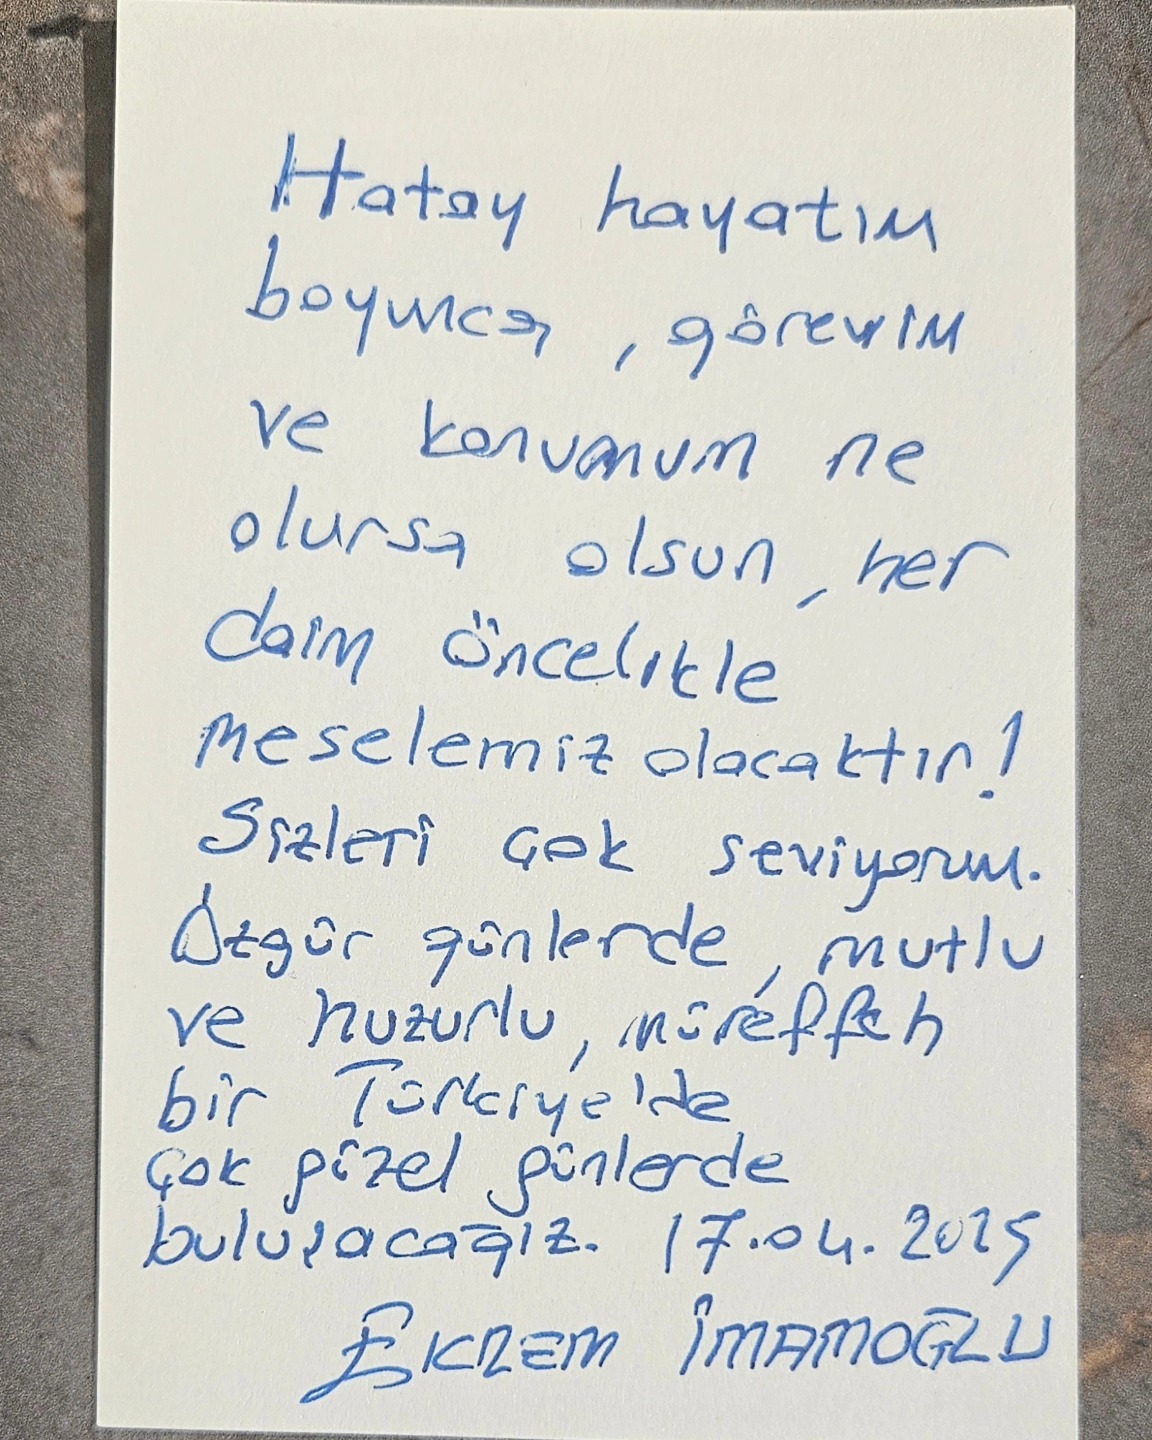 Hatay hayatım
boyunca, görevim
ve konumum ne
olursa olsun, her
daim öncelikle
meselemiz olacaktır!
Sizleri çok seviyorum.
Özgür günlerde, mutlu
ve huzurlu, müreffeh
bir Türkiye'de
çok güzel günlerde
buluşacağız. 17.04.2025
EKREM İMAMOĞLU